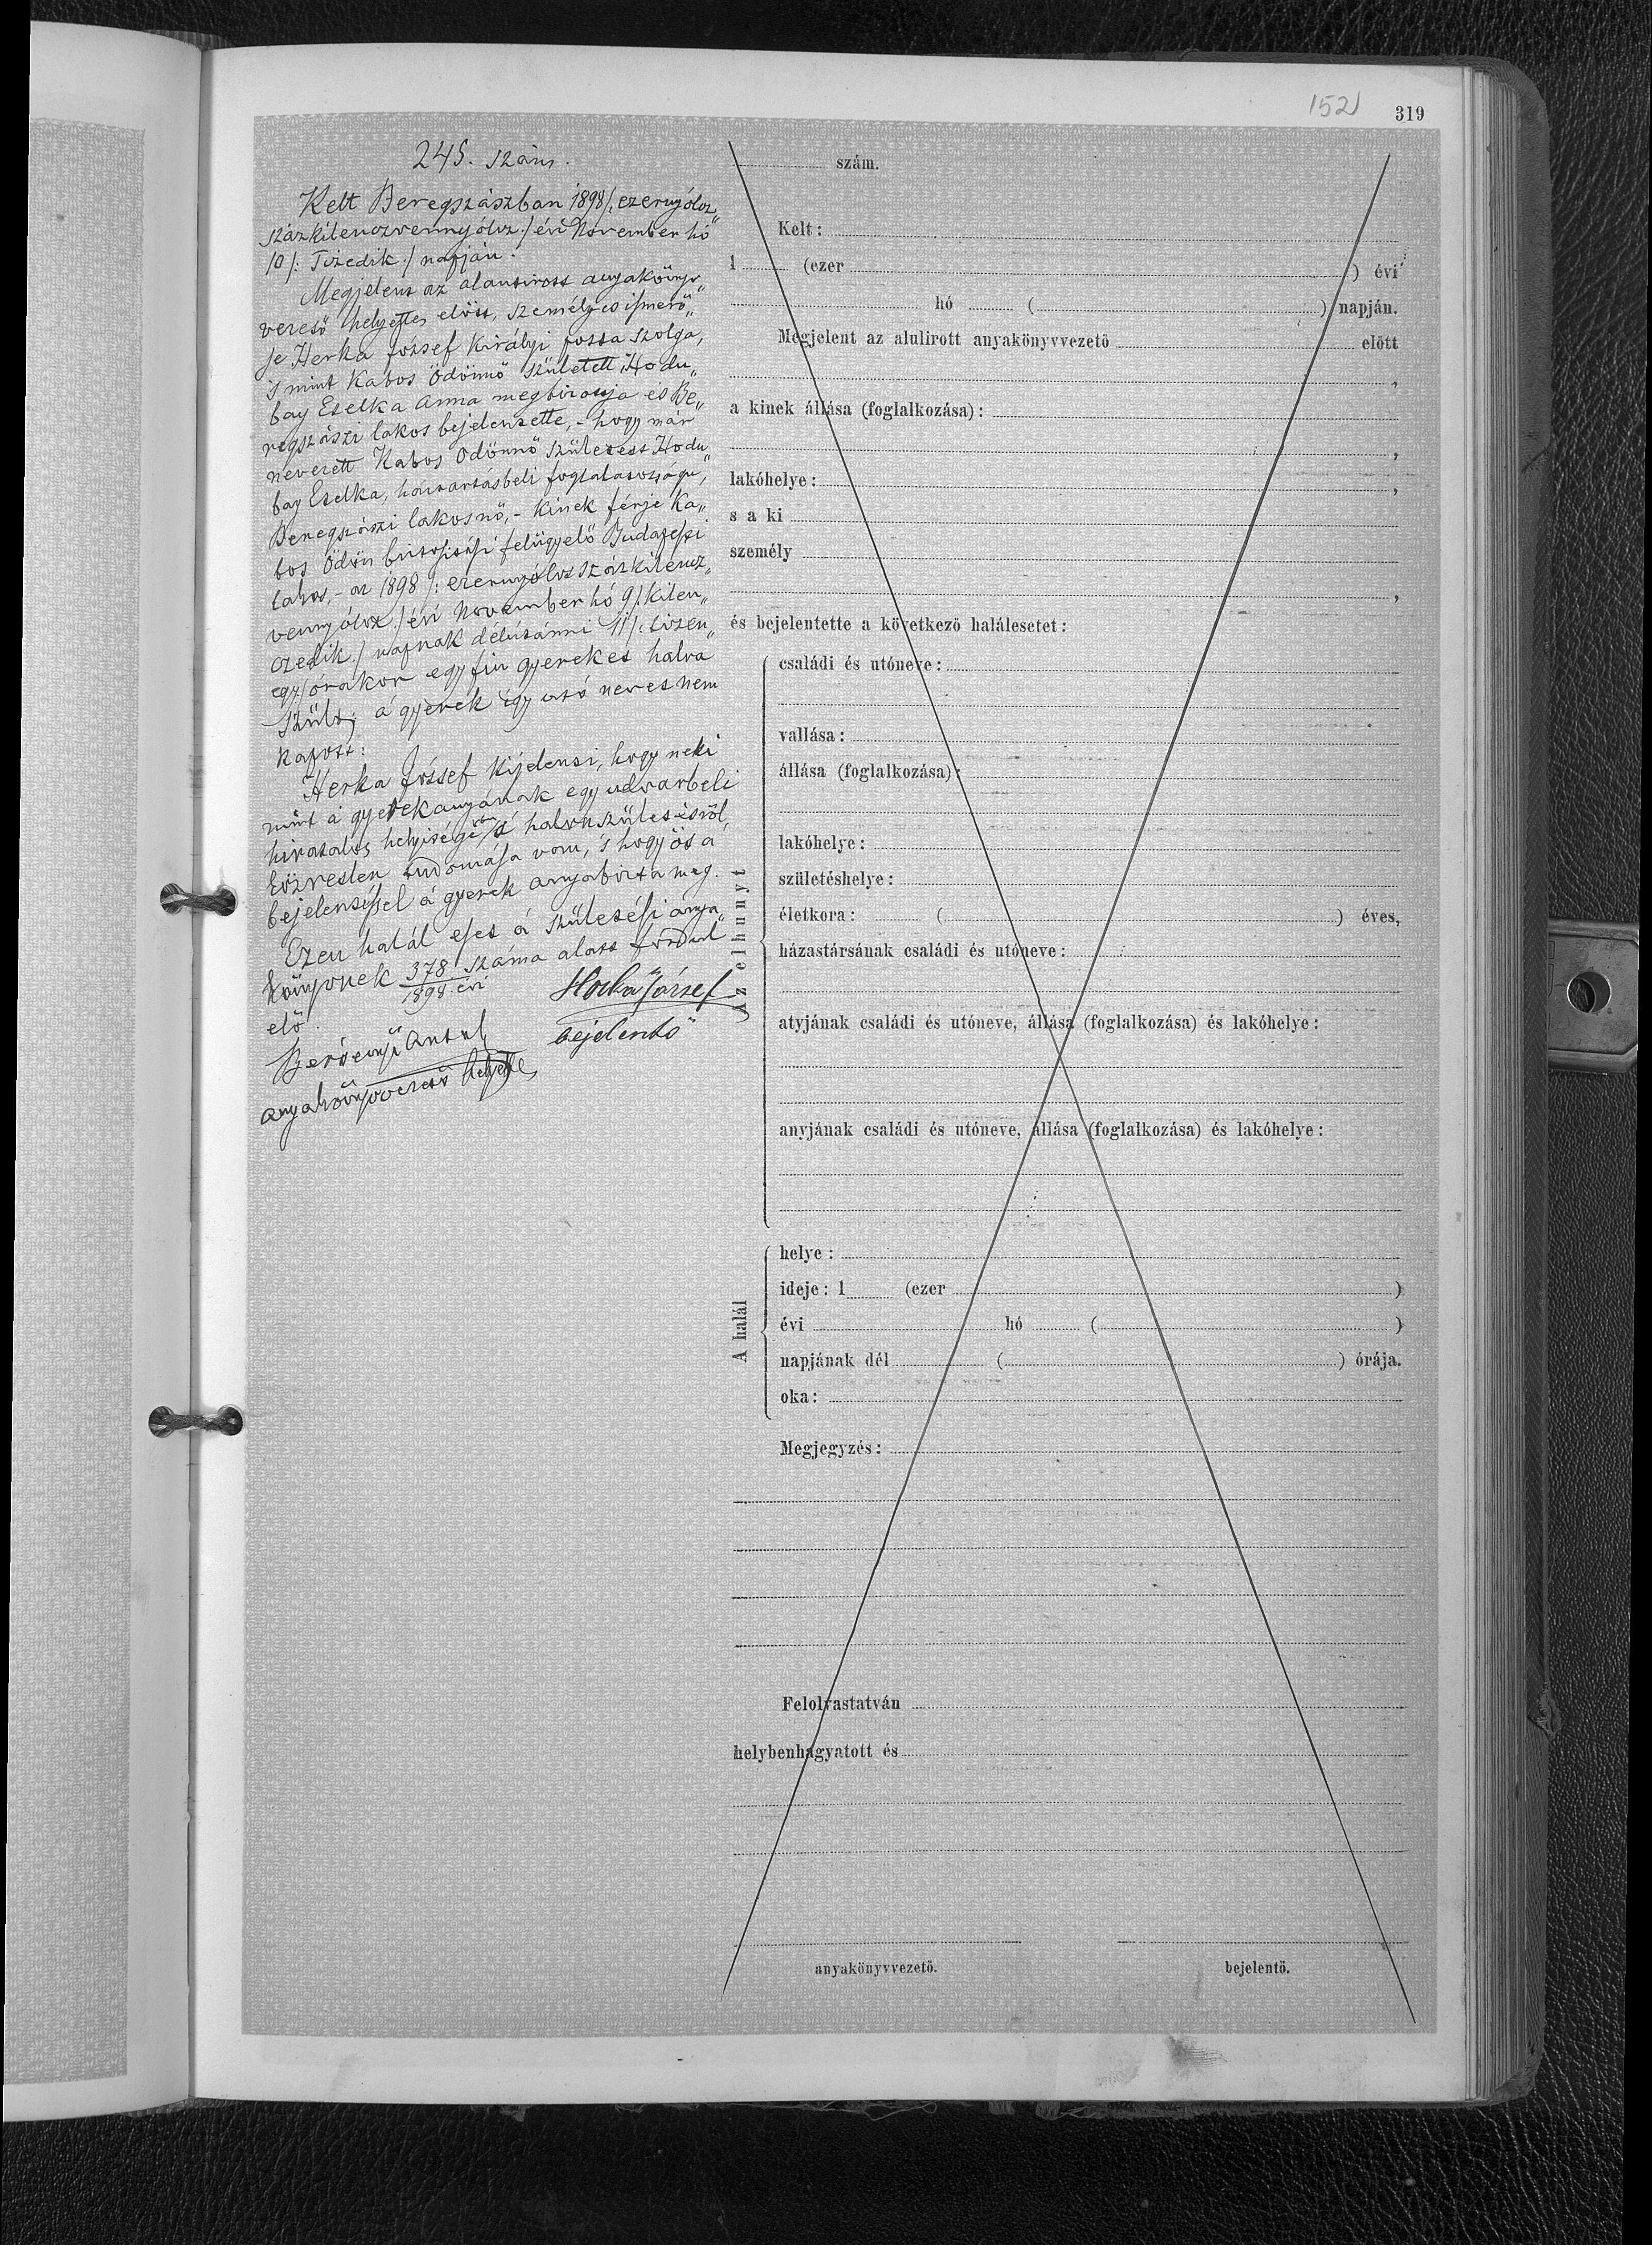 152
319
245. szám.
Kelt Beregszászban 1898 /: ezernyólcz„
százkilenczvennyólcz :/ évi November hó
10 /: Tizedik :/ napján.
Megjelent az alantirott anyakönyv„
vezető helyettes előtt, személyes ismerő„
je Herka József Királyi posta szolga,
s mint Kabos Ödönné született Hodu„
bay Etelka Anna megbizottja es Be„
regszászi lakos bejelentette, - hogy már
nevezett Kabos Ödönné született Hodu„
bay Etelka, háztartásbeli foglalatosságu,
Beregszászi lakosnő, - kinek férje Ka„
bos Ödön biztosítási felügyelő Budapesti
lakos, - az 1898 /: ezernyólcz százkilencz„
vennyólcz :/ évi November hó 9 /: kilen„
czedik :/ napnak délutánni 11 /: tizen„
egy / órakor egy fiu gyereket halva
szült; a gyerek így utó nevet nem
kapott:
Herka József kijelenti, hogy neki
mint a gyerek anyának egy udvarbeli
hivatalos helyisége a halvaszületésről,
közvetlen tudomása van, 's hogy öt a
bejelentéssel a gyerek anya bizta meg.
Ezen halál eset a születési anya„
könyvnek 378 száma alatt fordul
1898 évi
elő.
Herka József
bejelentő
Bersenyi Antal
anyakönyvvezető helyettes
szám.
Kelt:
1 (ezer ) évi
hó ( ) napján.
Megjelent az alulirott anyakönyvvezető előtt
,
a kinek állása (foglalkozása):
,
lakóhelye: ,
s a ki
személy
,
és bejelentette a következő halálesetet:
Az elhunyt
családi és utóneve:
vallása:
állása (foglalkozása):
lakóhelye:
születéshelye:
életkora: ( ) éves,
házastársának családi és utóneve:
atyjának családi és utóneve, állása (foglalkozása) és lakóhelye:
anyjának családi és utóneve, állása (foglalkozása) és lakóhelye:
A halál
helye:
ideje: 1 (ezer )
évi hó ( )
napjának dél ( ) órája.
oka:
Megjegyzés:
Felolvastatván
helybenhagyatott és
anyakönyvvezető.
bejelentő.